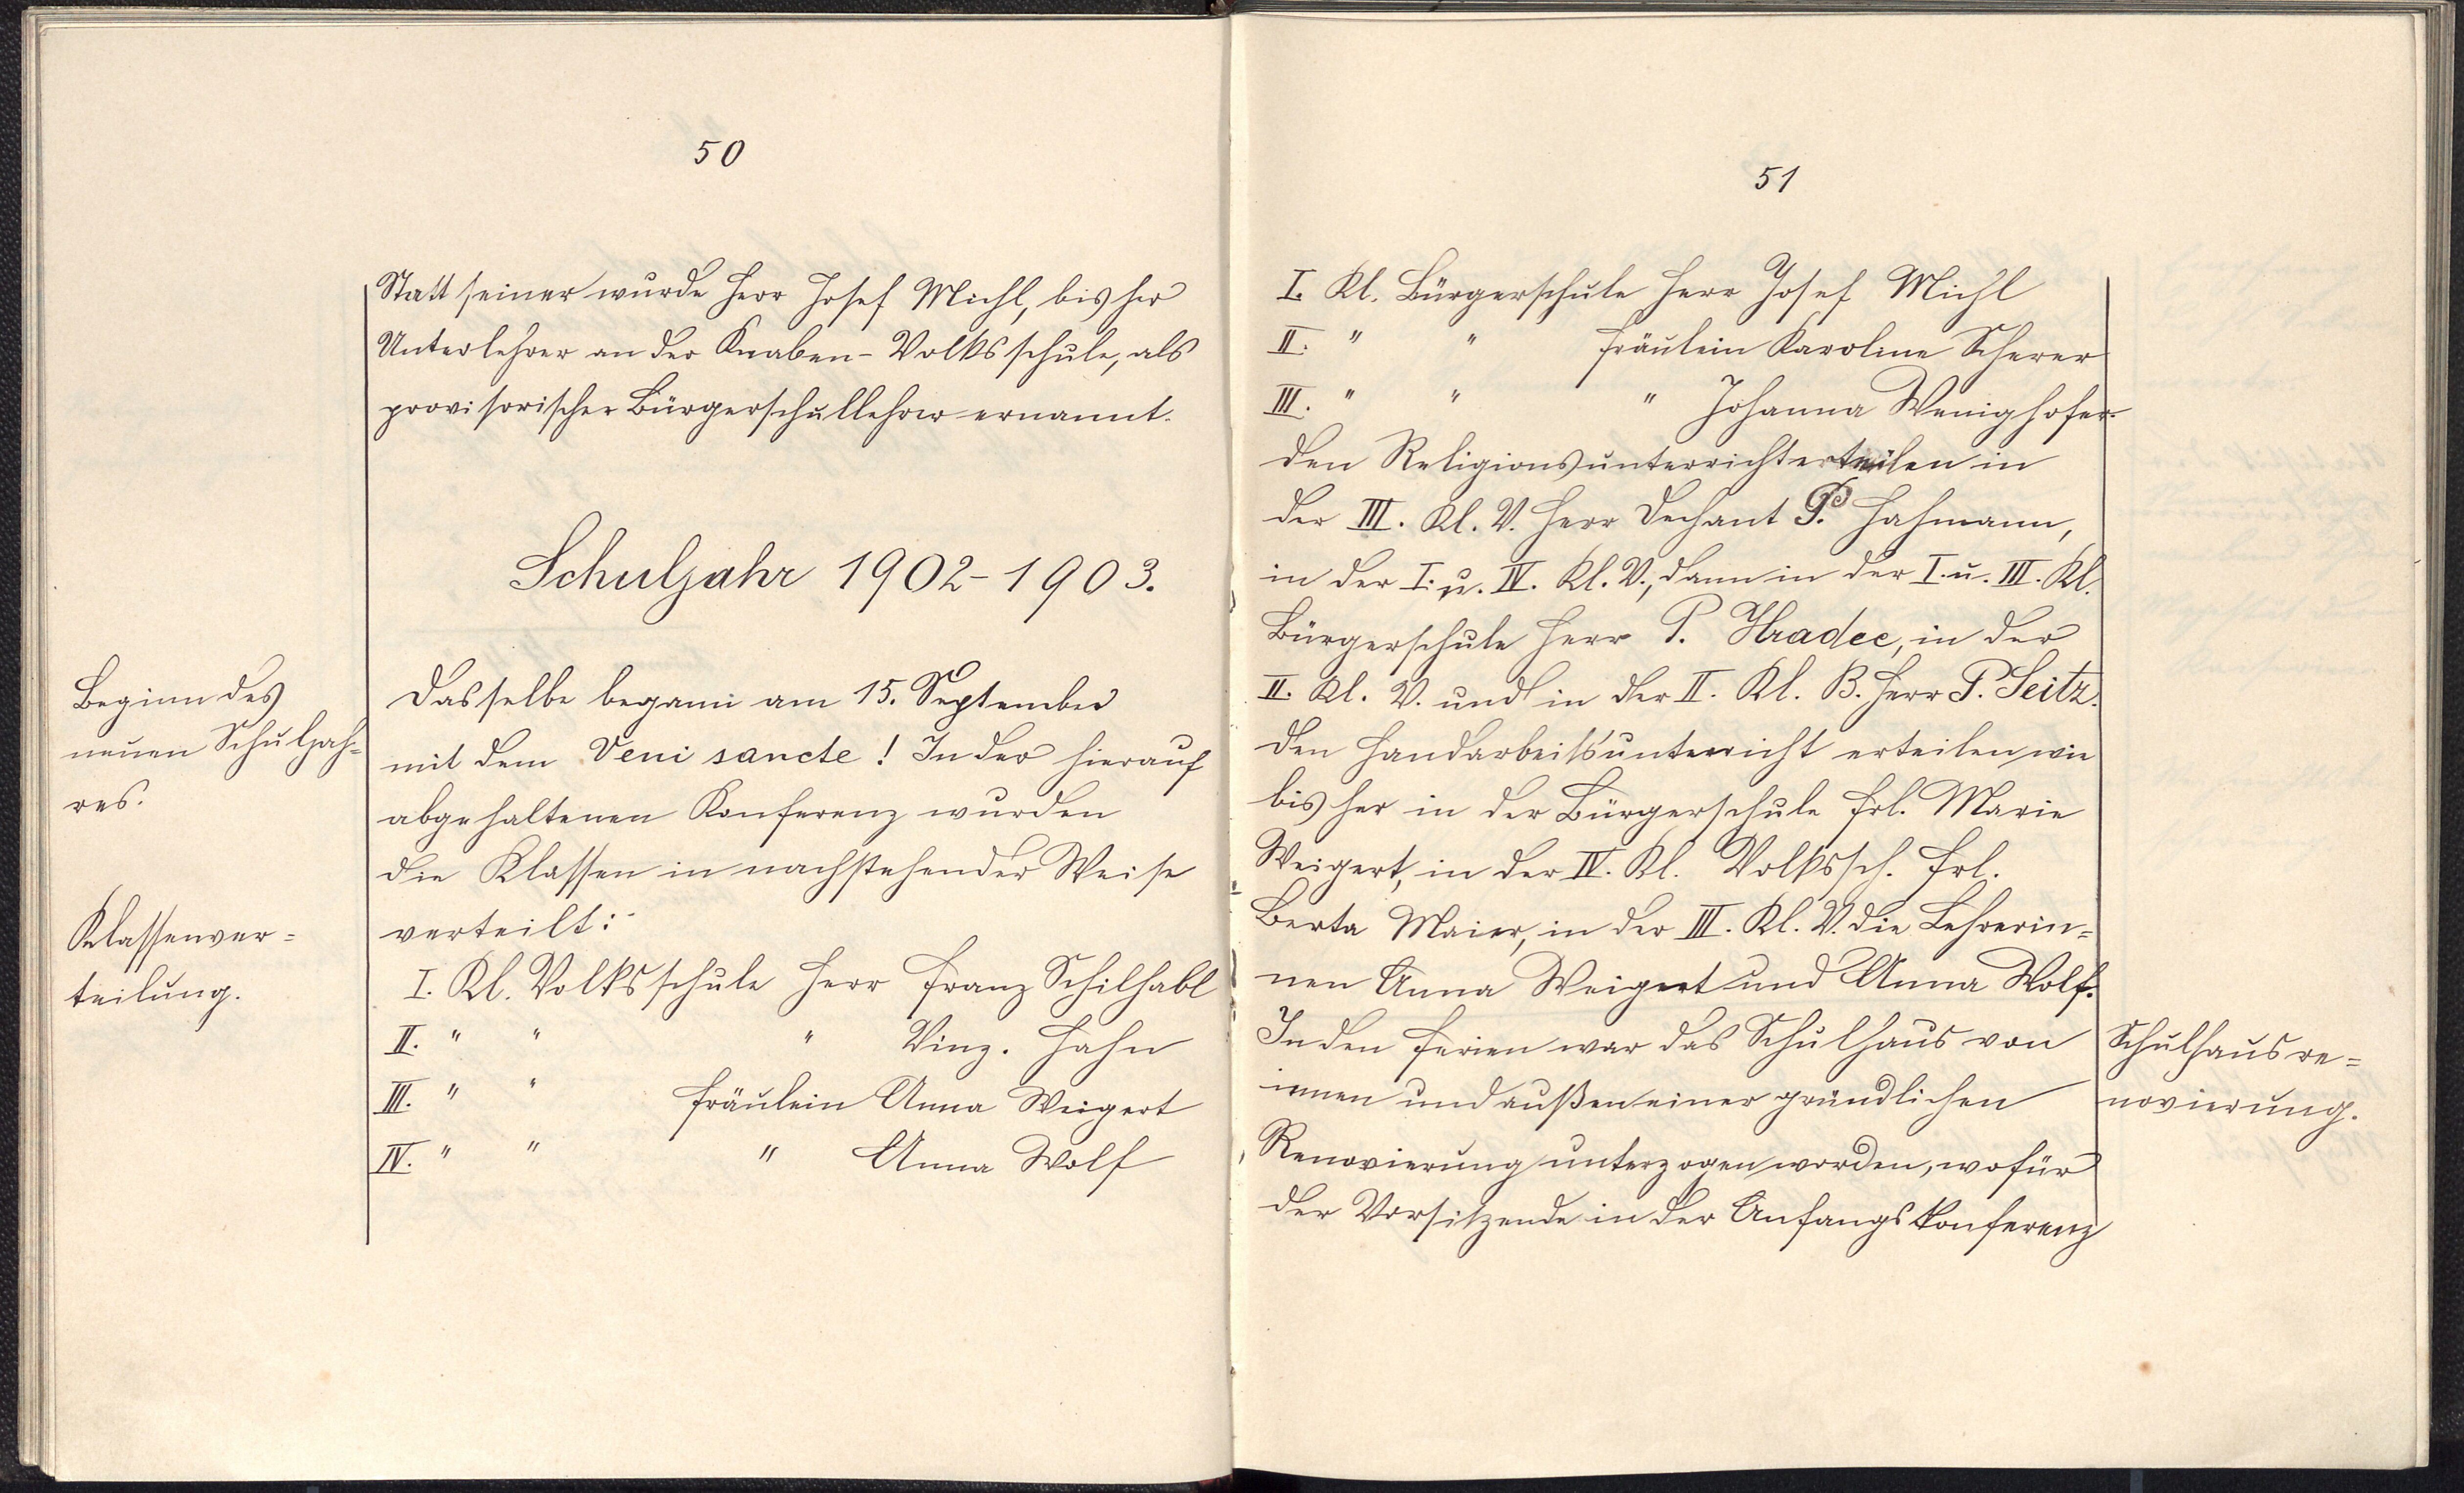 50
Statt seiner wurde Herr Josef Michl, bisher
Unterlehrer an der Knaben-Volksschule, als
provisorischer Bürgerschullehrer ernannt.
Schuljahr 1902-1903.
Beginn des
neuen Schuljah=
res.
Dasselbe begann am 15. September
mit dem Veni sancte! In der hierauf
abgehaltenen Konferenz wurden
die Klassen in nachstehender Weise
verteilt:
Klassenver=
teilung.
I. Kl. Volksschule Herr Franz Schilhabl
II. " " " Vinz. Hahn
III. " " Fräulein Anna Weigert
IV. " " " Anna Wolf
51
I. Kl. Bürgerschule Herr Josef Michl
II. " " Fräulein Karoline Scherer
III. " " " Johanna Wenighofer.
Den Religionsunterricht erteilen in
der III. Kl. V. Herr Dechant P. Hahmann,
in der I. u. IV. Kl. V., dann in der I. u. III. Kl.
Bürgerschule Herr P. Hradec, in der
II. Kl. V. und in der II. Kl. B. Herr P. Seitz.
Den Handarbeitsunterricht erteilen wie
bisher in der Bürgerschule Frl. Marie
Weigert, in der IV. Kl. Volkssch. Frl.
Berta Maier, in der III. Kl. V. die Lehrerin=
nen Anna Weigert und Anna Wolf.
In den Ferien war das Schulhaus von
innen und außen einer gründlichen
Renovierung unterzogen worden, wofür
der Vorsitzende in der Anfangskonferenz
Schulhausre=
novierung.